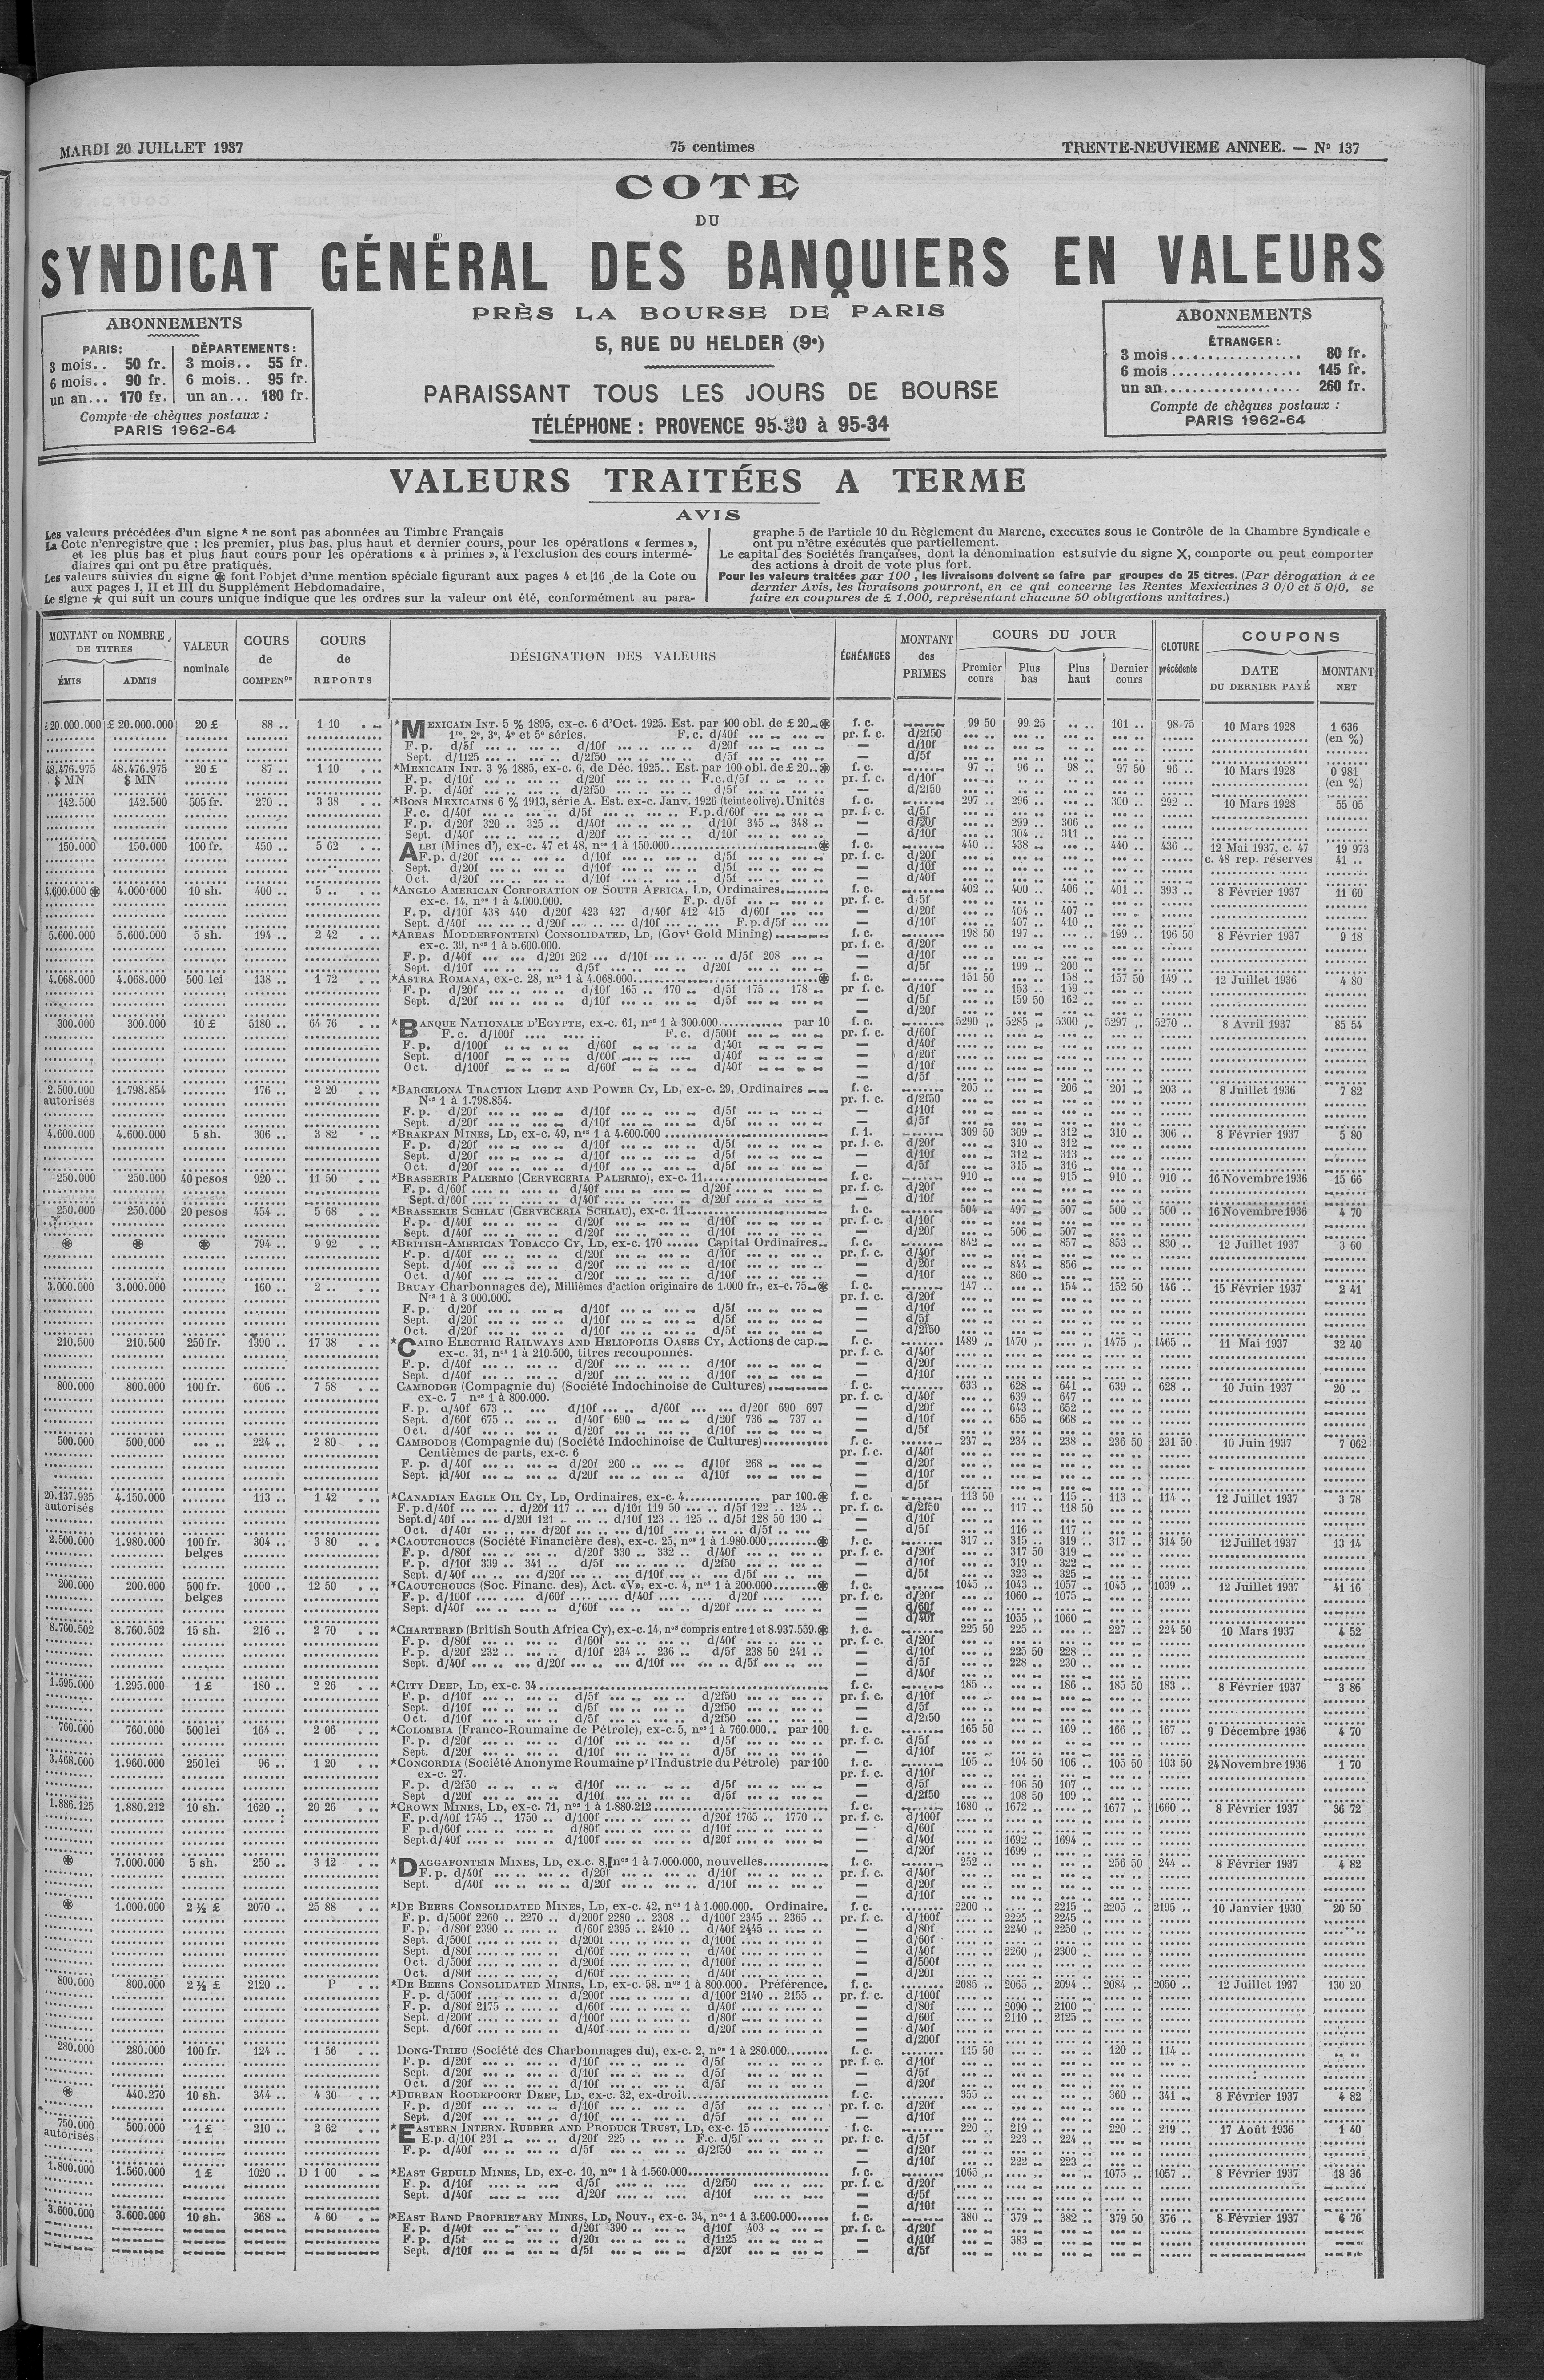 MARDI 20 JUILLET 1937 75 centimes TRENTE-NEUVIEME ANNEE. — Nº 137
COTE
DU
SYNDICAT GÉNÉRAL DES BANQUIERS EN VALEURS
PRÈS LA BOURSE DE PARIS
5, RUE DU HELDER (9e)
PARAISSANT TOUS LES JOURS DE BOURSE
TÉLÉPHONE : PROVENCE 95-30 à 95-34
ABONNEMENTS
PARIS: DÉPARTEMENTS:
3 mois.. 50 fr. 3 mois.. 55 fr.
6 mois.. 90 fr. 6 mois.. 95 fr.
un an... 170 fr. un an... 180 fr.
Compte de chèques postaux :
PARIS 1962-64
ABONNEMENTS
ÉTRANGER :
3 mois .................. 80 fr.
6 mois .................. 145 fr.
un an................... 260 fr.
Compte de chèques postaux :
PARIS 1962-64
VALEURS TRAITÉES A TERME
AVIS
Les valeurs précédées d'un signe * ne sont pas abonnées au Timbre Français
La Cote n'enregistre que : les premier, plus bas, plus haut et dernier cours, pour les opérations « fermes »,
et les plus bas et plus haut cours pour les opérations « à primes », à l'exclusion des cours intermé-
diaires qui ont pu être pratiqués.
Les valeurs suivies du signe ⊛ font l'objet d'une mention spéciale figurant aux pages 4 et 16 de la Cote ou
aux pages I, II et III du Supplément Hebdomadaire.
Le signe ★ qui suit un cours unique indique que les ordres sur la valeur ont été, conformément au para-
graphe 5 de l'article 10 du Règlement du Marche, executes sous le Contrôle de la Chambre Syndicale e
ont pu n'être exécutés que partiellement.
Le capital des Sociétés françaises, dont la dénomination est suivie du signe X, comporte ou peut comporter
des actions à droit de vote plus fort.
Pour les valeurs traitées par 100, les livraisons doivent se faire par groupes de 25 titres. (Par dérogation à ce
dernier Avis, les livraisons pourront, en ce qui concerne les Rentes Mexicaines 3 0/0 et 5 0/0, se
faire en coupures de £ 1.000, représentant chacune 50 obligations unitaires.)
MONTANT ou NOMBRE DE TITRES ÉMIS ADMIS
VALEUR nominale
COURS de COMPENon
COURS de REPORTS
DÉSIGNATION DES VALEURS
ÉCHÉANCES
MONTANT des PRIMES
COURS DU JOUR Premier cours Plus bas Plus haut Dernier cours
CLOTURE précédente
COUPONS DATE DU DERNIER PAYÉ MONTANT NET
£ 20.000.000 £ 20.000.000 20 £ 88 .. 1 10 *MEXICAIN INT. 5 % 1895, ex-c. 6 d'Oct. 1925. Est. par 100 obl. de £ 20 ⊛ f. c. 99 50 99 25 101 .. 98 75 10 Mars 1928 1 636
1re, 2e, 3e, 4e et 5e séries. F. c. d/40f pr. f. c. d/2f50 (en %)
F. p. d/5f d/10f d/20f — d/10f
Sept. d/1f25 d/2f50 d/5f — d/5f
48.476.975 48.476.975 20 £ 87 .. 1 10 *MEXICAIN INT. 3 % 1885, ex-c. 6, de Déc. 1925.. Est. par 100 obl. de £ 20..⊛ f. c. 97 .. 96 .. 98 .. 97 50 96 .. 10 Mars 1928 0 981
$ MN $ MN F. p. d/10f d/20f F.c.d/5f pr. f. c. d/10f (en %)
F. p. d/40f d/2f50 d/5f — d/2f50
142.500 142.500 505 fr. 270 .. 3 38 *BONS MEXICAINS 6 % 1913, série A. Est. ex-c. Janv. 1926 (teinte olive). Unités f. c. 297 .. 296 .. 300 .. 292 .. 10 Mars 1928 55 05
F. c. d/40f d/5f F.p.d/60f pr. f. c. d/5f
F. p. d/20f 320 .. 325 .. d/40f d/10f 345 .. 348 .. — d/20f 299 .. 306 ..
Sept. d/40f d/20f d/10f — d/10f 304 .. 311 ..
150.000 150.000 100 fr. 450 .. 5 62 ALBI (Mines d'), ex-c. 47 et 48, nos 1 à 150.000 ⊛ f. c. 440 .. 438 .. 440 .. 436 .. 12 Mai 1937, c. 47 19 973
F. p. d/20f d/10f d/5f pr. f. c. d/20f c. 48 rep. réserves 41 ..
Sept. d/20f d/10f d/5f — d/10f
Oct. d/20f d/10f d/5f — d/40f
4.600.000 ⊛ 4.000.000 10 sh. 400 .. 5 .. *ANGLO AMERICAN CORPORATION OF SOUTH AFRICA, LD, Ordinaires f. c. 402 .. 400 .. 406 401 .. 393 .. 8 Février 1937 11 60
ex-c. 14, nos 1 à 4.000.000. F. p. d/5f pr. f. c. d/5f
F. p. d/10f 438 440 d/20f 423 427 d/40f 412 415 d/60f — d/20f 404 .. 407 ..
Sept. d/40f d/20f d/10f F. p. d/5f — d/10f 407 .. 410 ..
5.600.000 5.600.000 5 sh. 194 .. 2 42 *AREAS MODDERFONTEIN CONSOLIDATED, LD, (Govt Gold Mining) f. c. 198 50 197 .. 199 .. 196 50 8 Février 1937 9 18
ex-c. 39, nos 1 à 5.600.000. pr. f. c. d/20f
F. p. d/40f d/20f 202 d/10f d/5f 208 — d/10f
Sept. d/10f d/5f d/20f — d/5f 199 .. 200 ..
4.068.000 4.068.000 500 lei 138 .. 1 72 *ASTRA ROMANA, ex-c. 28, nos 1 à 4.068.000 ⊛ f. c. 151 50 158 .. 157 50 149 .. 12 Juillet 1936 4 80
F. p. d/20f d/10f 165 .. 170 d/5f 175 .. 178 .. pr f. c. d/10f 153 .. 159
Sept. d/20f d/10f d/5f — d/5f 159 50 162 ..
— d/20f
300.000 300.000 10 £ 5180 .. 64 76 *BANQUE NATIONALE D'EGYPTE, ex-c. 61, nos 1 à 300.000 par 10 f. c. 5290 .. 5285 .. 5300 .. 5297 .. 5270 .. 8 Avril 1937 85 54
F. c. d/100f F. c. d/500f pr. f. c. d/60f
F. p. d/100f d/60f d/40f — d/40f
Sept. d/100f d/60f d/40f — d/20f
Oct. d/100f d/60f d/40f — d/10f
— d/5f
2.500.000 1.798.854 176 .. 2 20 *BARCELONA TRACTION LIGHT AND POWER CY, LD, ex-c. 29, Ordinaires f. c. 205 .. 206 201 .. 203 .. 8 Juillet 1936 7 82
autorisés Nos 1 à 1.798.854. pr. f. c. d/2f50
F. p. d/20f d/10f d/5f — d/10f
Sept. d/20f d/10f d/5f — d/5f
4.600.000 4.600.000 5 sh. 306 .. 3 82 *BRAKPAN MINES, LD, ex-c. 49, nos 1 à 4.600.000 f. 1. 309 50 309 .. 312 310 .. 306 .. 8 Février 1937 5 80
F. p. d/20f d/10f d/5f pr. f. c. d/20f 310 .. 312
Sept. d/20f d/10f d/5f — d/10f 312 .. 313
Oct. d/20f d/10f d/5f — d/5f 315 .. 316
250.000 250.000 40 pesos 920 .. 11 50 *BRASSERIE PALERMO (CERVECERIA PALERMO), ex-c. 11 f. c. 910 .. 915 .. 910 .. 910 .. 16 Novembre 1936 15 66
F. p. d/60f d/40f d/20f pr. f. c. d/20f
Sept. d/60f d/40f d/20f — d/10f
250.000 250.000 20 pesos 454 .. 5 68 *BRASSERIE SCHLAU (CERVECERIA SCHLAU), ex-c. 11 f. c. 504 .. 497 .. 507 500 .. 500 .. 16 Novembre 1936 4 70
F. p. d/40f d/20f d/10f pr. f. c. d/10f
Sept. d/40f d/20f d/10f — d/20f 506 .. 507
⊛ ⊛ ⊛ 794 .. 9 92 *BRITISH-AMERICAN TOBACCO CY, LD, ex-c. 170 ...... Capital Ordinaires f. c. 842 .. 857 853 .. 830 .. 12 Juillet 1937 3 60
F. p. d/40f d/20f d/10f pr. f. c. d/40f
Sept. d/40f d/20f d/10f — d/20f 844 .. 856 ..
Oct. d/40f d/20f d/10f — d/10f 860
3.000.000 3.000.000 160 .. 2 .. BRUAY Charbonnages de), Millièmes d'action originaire de 1.000 fr., ex-c. 75 ⊛ f. c. 147 .. 154 152 50 146 .. 15 Février 1937 2 41
Nos 1 à 3 000.000. pr. f. c. d/20f
F. p. d/20f d/10f d/5f — d/10f
Sept. d/20f d/10f d/5f — d/5f
Oct. d/20f d/10f d/5f — d/2f50
210.500 210.500 250 fr. 1390 .. 17 38 *CAIRO ELECTRIC RAILWAYS AND HELIOPOLIS OASES CY, Actions de cap. f. c. 1489 .. 1470 .. 1475 .. 1465 .. 11 Mai 1937 32 40
ex-c. 31, nos 1 à 210.500, titres recouponnés. pr. f. c. d/40f
F. p. d/40f d/20f d/10f — d/20f
Sept. d/40f d/20f d/10f — d/10f
800.000 800.000 100 fr. 606 .. 7 58 CAMBODGE (Compagnie du) (Société Indochinoise de Cultures) f. c. 633 .. 628 .. 641 .. 639 .. 628 .. 10 Juin 1937 20 ..
ex-c. 7 nos 1 à 800.000. pr. f. c. d/40f 639 .. 647 ..
F. p. d/40f 673 .. d/10f d/60f d/20f 690 697 — d/20f 643 .. 652 ..
Sept. d/60f 675 .. d/40f 690 d/20f 736 737 .. — d/10f 655 .. 668 ..
Oct. d/40f d/20f d/10f — d/5f
500.000 500.000 224 .. 2 80 CAMBODGE (Compagnie du) (Société Indochinoise de Cultures) f. c. 237 .. 234 .. 238 .. 236 50 231 50 10 Juin 1937 7 062
Centièmes de parts, ex-c. 6 pr. f. c. d/40f
F. p. d/40f d/20f 260 .. d/10f 268 — d/20f
Sept. d/40f d/20f d/10f — d/10f
— d/5f
20.137.935 4.150.000 113 .. 1 42 *CANADIAN EAGLE OIL CY, LD, Ordinaires, ex-c. 4 par 100.⊛ f. c. 113 50 115 .. 113 .. 114 .. 12 Juillet 1937 3 78
autorisés F. p. d/40f d/20f 117 .. d/10f 119 50 d/5f 122 .. 124 .. pr. f. c. d/2f50 117 .. 118 50
Sept. d/40f d/20f 121 d/10f 123 .. 125 .. d/5f 128 50 130 — d/10f
Oct. d/40f d/20f d/10f d/5f — d/5f 116 .. 117 ..
2.500.000 1.980.000 100 fr. 304 .. 3 80 *CAOUTCHOUCS (Société Financière des), ex-c. 25, nos 1 à 1.980.000 ⊛ f. c. 317 .. 315 .. 319 .. 317 .. 314 50 12 Juillet 1937 13 14
belges F. p. d/80f d/20f 330 .. 332 .. d/40f pr. f. c. d/20f 317 50 319 ..
F. p. d/10f 339 .. 341 .. d/5f d/2f50 — d/10f 319 .. 322 ..
Sept. d/40f d/20f d/10f d/5f — d/5f 323 .. 325 ..
200.000 200.000 500 fr. 1000 .. 12 50 *CAOUTCHOUCS (Soc. Financ. des), Act. «V», ex-c. 4, nos 1 à 200.000 ⊛ f. c. 1045 .. 1043 .. 1057 .. 1045 .. 1039 .. 12 Juillet 1937 41 16
belges F. p. d/100f d/60f d/40f d/20f pr. f. c. d/20f 1060 .. 1075
Sept. d/40f d/60f d/20f — d/60f
— d/40f 1055 .. 1060
8.760.502 8.760.502 15 sh. 216 .. 2 70 *CHARTERED (British South Africa Cy), ex-c. 14, nos compris entre 1 et 8.937.559.⊛ f. c. 225 50 225 .. 227 .. 224 50 10 Mars 1937 4 52
F. p. d/80f d/60f d/40f pr. f. c. d/20f
F. p. d/20f 232 .. d/10f 234 .. 236 .. d/5f 238 50 241 .. — d/10f 225 50 228 ..
Sept. d/40f d/20f d/10f d/5f — d/5f 228 .. 230 ..
— d/40f
1.595.000 1.295.000 1 £ 180 .. 2 26 *CITY DEEP, LD, ex-c. 34 f. c. 185 .. 186 .. 185 50 183 .. 8 Février 1937 3 86
F. p. d/10f d/5f d/2f50 pr. f. c. d/10f
Sept. d/10f d/5f d/2f50 — d/5f
Oct. d/10f d/5f d/2f50 — d/2f50
760.000 760.000 500 lei 164 .. 2 06 *COLOMBIA (Franco-Roumaine de Pétrole), ex-c. 5, nos 1 à 760.000.. par 100 f. c. 165 50 169 .. 166 .. 167 .. 9 Décembre 1936 4 70
F. p. d/20f d/10f d/5f — d/5f
Sept. d/20f d/10f d/5f — d/10f
3.468.000 1.960.000 250 lei 96 .. 1 20 *CONCORDIA (Société Anonyme Roumaine pr l'Industrie du Pétrole) par 100 f. c. 105 .. 104 50 106 .. 105 50 103 50 24 Novembre 1936 1 70
ex-c. 27. pr. f. c. d/10f
F. p. d/2f50 d/10f d/5f — d/5f 106 50 107
Sept d/20f d/10f d/5f — d/2f50 108 50 109
1.886.125 1.880.212 10 sh. 1620 .. 20 26 *CROWN MINES, LD, ex-c. 71, nos 1 à 1.880.212 f. c. 1680 .. 1672 .. 1677 .. 1660 .. 8 Février 1937 36 72
F. p. d/40f 1745 .. 1750 .. d/100f d/20f 1765 .. 1770 .. pr. f. c. d/100f
F p. d/60f d/80f d/10f — d/60f
Sept. d/40f d/100f d/20f — d/40f 1692 .. 1694
— d/20f 1699
⊛ 7.000.000 5 sh. 250 .. 3 12 *DAGGAFONTEIN MINES, LD, ex.c. 8, nos 1 à 7.000.000, nouvelles f. c. 252 .. 256 50 244 .. 8 Février 1937 4 82
F. p. d/40f d/20f d/10f pr. f. c. d/40f
Sept. d/40f d/20f d/10f — d/20f
— d/10f
⊛ 1.000.000 2 ½ £ 2070 .. 25 88 *DE BEERS CONSOLIDATED MINES, LD, ex-c. 42, nos 1 à 1.000.000. Ordinaire. f. c. 2200 .. 2215 .. 2205 .. 2195 .. 10 Janvier 1930 20 50
F. p. d/500f 2260 .. 2270 .. d/200f 2280 .. 2308 .. d/100f 2345 .. 2365 .. pr. f. c. d/100f 2225 .. 2245
F. p. d/80f 2390 .. d/60f 2395 .. 2410 .. d/40f 2445 .. — d/80f 2240 .. 2250
Sept. d/500f d/200f d/100f — d/60f
Sept. d/80f d/60f d/40f — d/40f 2260 .. 2300
Oct. d/500f d/200f d/100f — d/500f
Oct. d/80f d/60f d/40f — d/20f
800.000 800.000 2 ½ £ 2120 .. P *DE BEERS CONSOLIDATED MINES, LD, ex-c. 58. nos 1 à 800.000. Préférence. f. c. 2085 .. 2065 .. 2094 .. 2084 .. 2050 .. 12 Juillet 1937 130 20
F. p. d/500f d/200f d/100f 2140 .. 2155 .. pr. f. c. d/100f
F. p. d/80f 2175 .. d/60f d/40f — d/80f 2090 .. 2100
Sept. d/200f d/100f d/80f — d/60f 2110 .. 2125
Sept. d/60f d/40f d/20f — d/40f
— d/200f
280.000 280.000 100 fr. 124 .. 1 56 DONG-TRIEU (Société des Charbonnages du), ex-c. 2, nos 1 à 280.000 f. c. 115 50 120 .. 114 ..
F. p. d/20f d/10f d/5f pr. f. c. d/10f
Sept. d/20f d/10f d/5f — d/5f
Oct. d/20f d/10f d/5f — d/20f
⊛ 440.270 10 sh. 344 .. 4 30 *DURBAN ROODEPOORT DEEP, LD, ex-c. 32, ex-droit f. c. 355 .. 360 .. 341 .. 8 Février 1937 4 82
F. p. d/20f d/10f d/5f pr. f. c. d/20f
Sept. d/20f d/10f d/5f — d/10f
750.000 500.000 1 £ 210 .. 2 62 *EASTERN INTERN. RUBBER AND PRODUCE TRUST, LD, ex-c. 15 f. c. 220 .. 219 .. 220 .. 219 .. 17 Août 1936 1 40
autorisés E.p. d/10f 231 d/20f 225 .. F.c. d/5f pr. f. c. d/5f 223 .. 224
F. p. d/40f d/5f d/2f50 — d/20f
— d/10f 222 .. 223
1.800.000 1.560.000 1 £ 1020 .. D 1 00 *EAST GEDULD MINES, LD, ex-c. 10, nos 1 à 1.560.000 f. c. 1065 .. 1075 .. 1057 .. 8 Février 1937 18 36
F. p. d/10f d/5f d/2f50 pr. f. c. d/20f
Sept. d/40f d/20f d/10f — d/5f
— d/10f
3.600.000 3.600.000 10 sh. 368 .. 4 60 *EAST RAND PROPRIETARY MINES, LD, Nouv., ex-c. 34, nos 1 à 3.600.000 f. c. 380 .. 379 .. 382 .. 379 50 376 .. 8 Février 1937 6 76
F. p. d/40f d/20f 390 .. d/10f 403 pr. f. c. d/20f
F. p. d/5f d/20f d/1f25 — d/10f 383
Sept. d/10f d/5f d/20f — d/5f